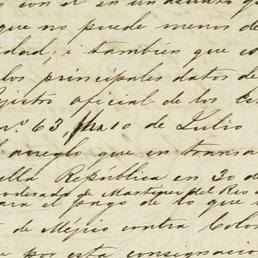 con el en un asunto q
que no puede menos de
dad; i tambien que es
los principales datos de
gistro oficial de los Es
nº 63, 10 de Julio
l arreglo que en transa
ella República en 30 d
poderado de Martinez del Rio
ara el pago de lo que
de Méjico contra Colo
por esta consignacio